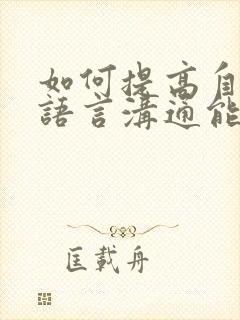 如何提高自
語言溝通能
匡載舟